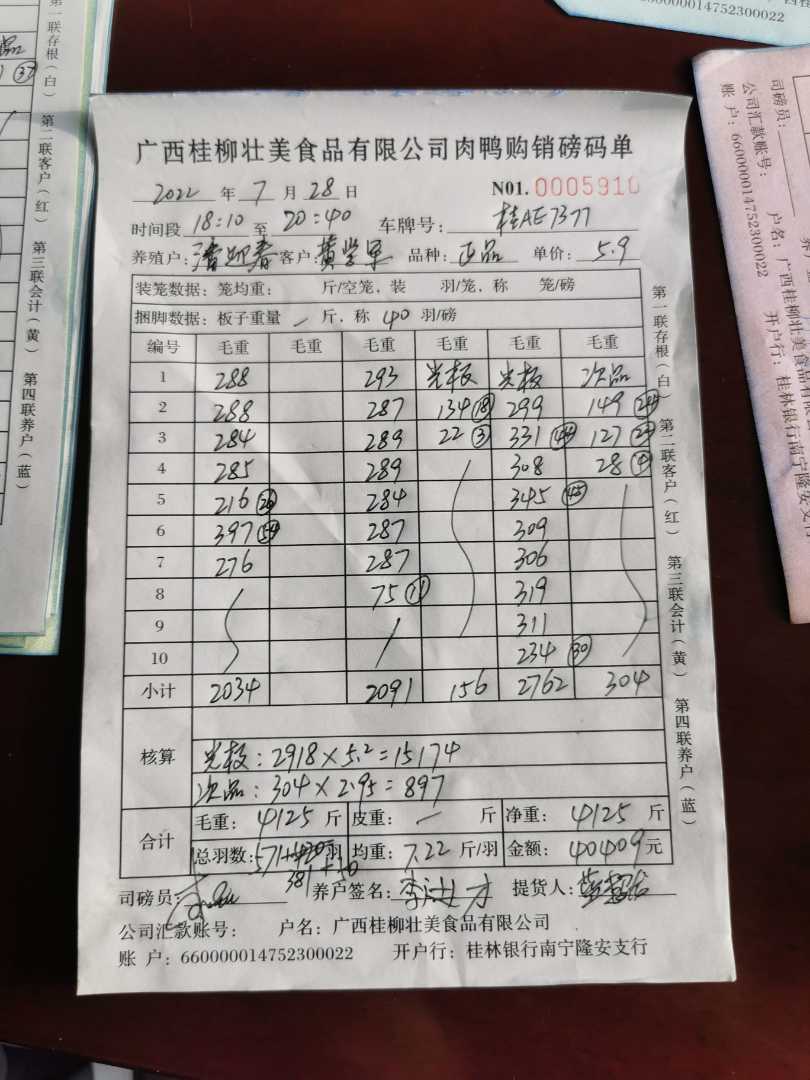 广西桂柳壮美食品有限公司肉鸭购销磅码单
2022 年 7 月 28 日 N01. 0005910
时间段 18:10 至 20:40 车牌号: 桂AE7377
养殖户: 潘迎春 客户 黄学军 品种: 正品 单价: 5.9
装笼数据: 笼均重: 斤/空笼, 装 羽/笼, 称 笼/磅
捆脚数据: 板子重量 — 斤, 称 40 羽/磅
编号 毛重 毛重 毛重 毛重 毛重 毛重
1 288 293 光板 光板 次品
2 288 287 134 (18) 299 149 (24)
3 284 289 22 (3) 331 (44) 127
4 285 289 308 28
5 216 (26) 284 345 (45)
6 397 (54) 287 309
7 276 287 306
8 75 (11) 319
9 311
10 234 (30)
小计 2034 2091 156 2762 304
核算
光板: 2918×5.2=15174
次品: 304×2.95=897
合计
毛重: 4125 斤 皮重: — 斤 净重: 4125 斤
总羽数: 571+420 羽 均重: 7.22 斤/羽 金额: 40409 元
381+50
司磅员: 养户签名: 提货人:
公司汇款账号: 户名: 广西桂柳壮美食品有限公司
账 户: 660000014752300022 开户行: 桂林银行南宁隆安支行
第一联存根(白) 第二联客户(红) 第三联会计(黄) 第四联养户(蓝)
第一联存根(白) 第二联客户(红) 第三联会计(黄) 第四联养户(蓝)
品
(37)
000014752300022
司磅员:
公司汇款账号:
账 户: 660000014752300022
户名: 广西桂柳壮美食品有限公
开户行: 桂林银行南宁隆安支行